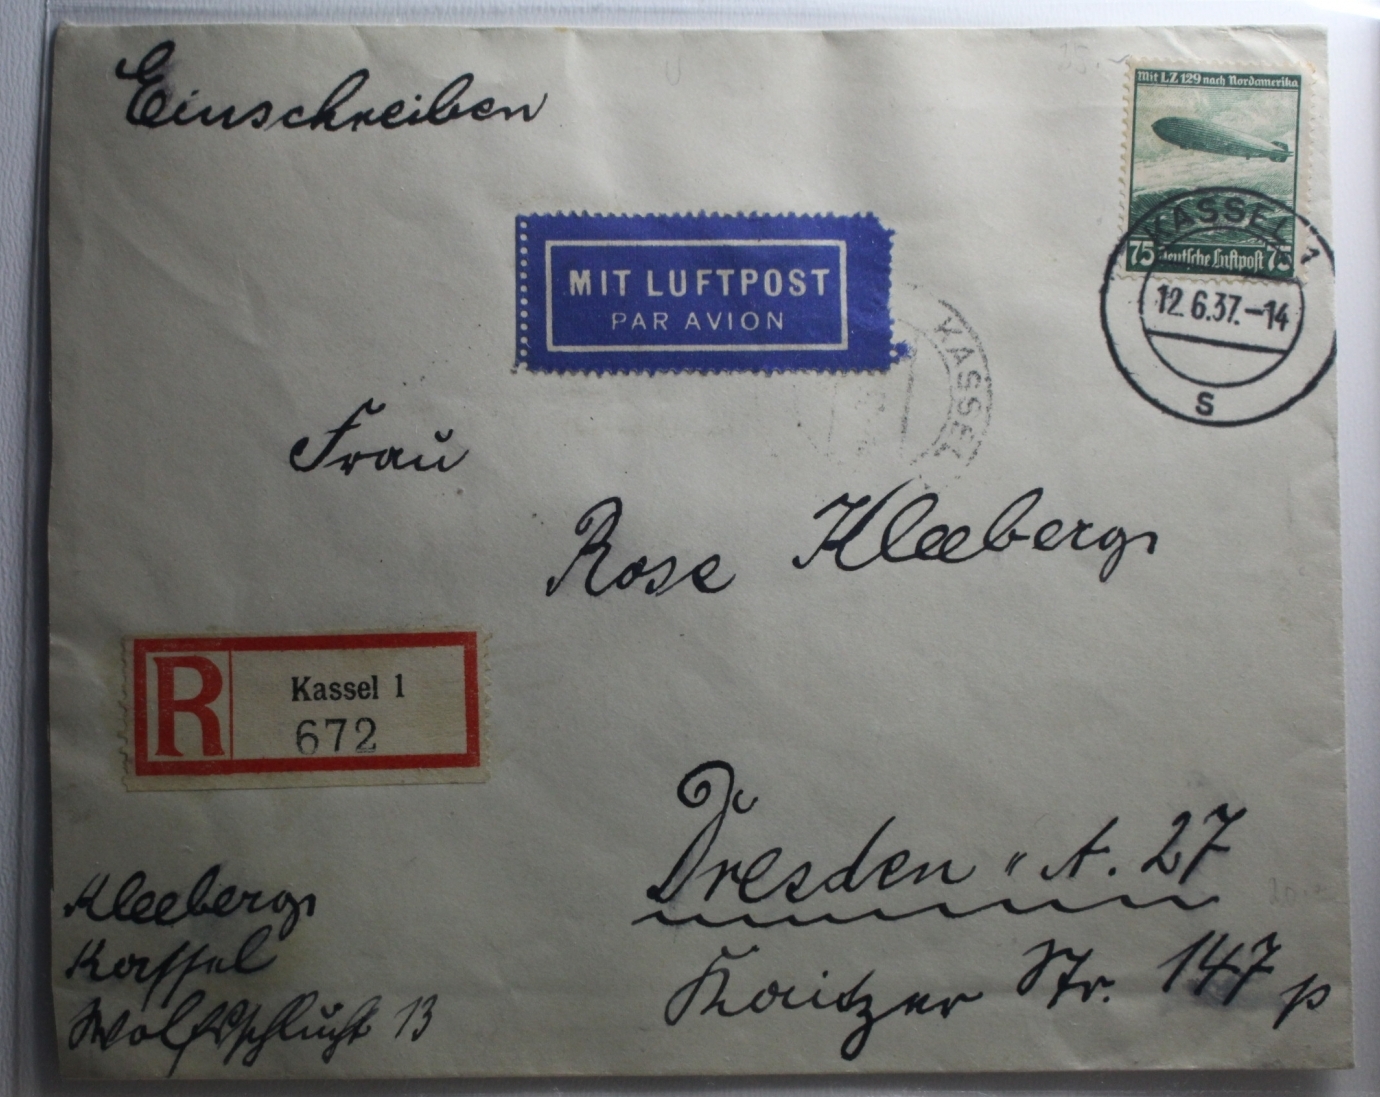 Einschreiben
Mit LZ 129 nach Nordamerika
75 Deutsche Luftpost 75
KASSEL 1
12.6.37.-14
s
MIT LUFTPOST
PAR AVION
KASSEL
Frau
Rose Kleeberg
R Kassel 1
672
Dresden - A. 27
Kaitzer Str. 147 p
Kleeberg
Kassel
Wolfsschlucht 13